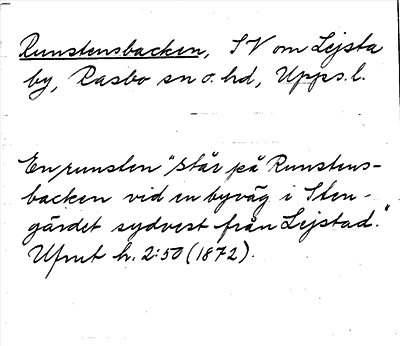 Runstensbacken, SV om Lejsta
by, Rasbo sn o. hd, Upps. l.
En runsten "står på Runstens-
backen vid en byväg i Sten-
gärdet sydvest från Lejstad."
Ufmt h. 2:50 (1872).